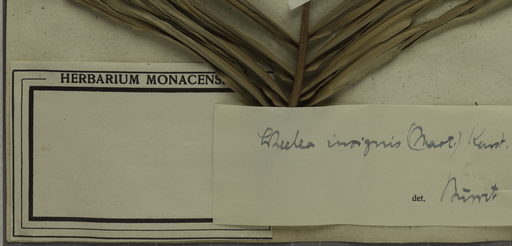 HERBARIUM MONACENS
Scheelea insignis (Mart.) Karst.
det. Burret